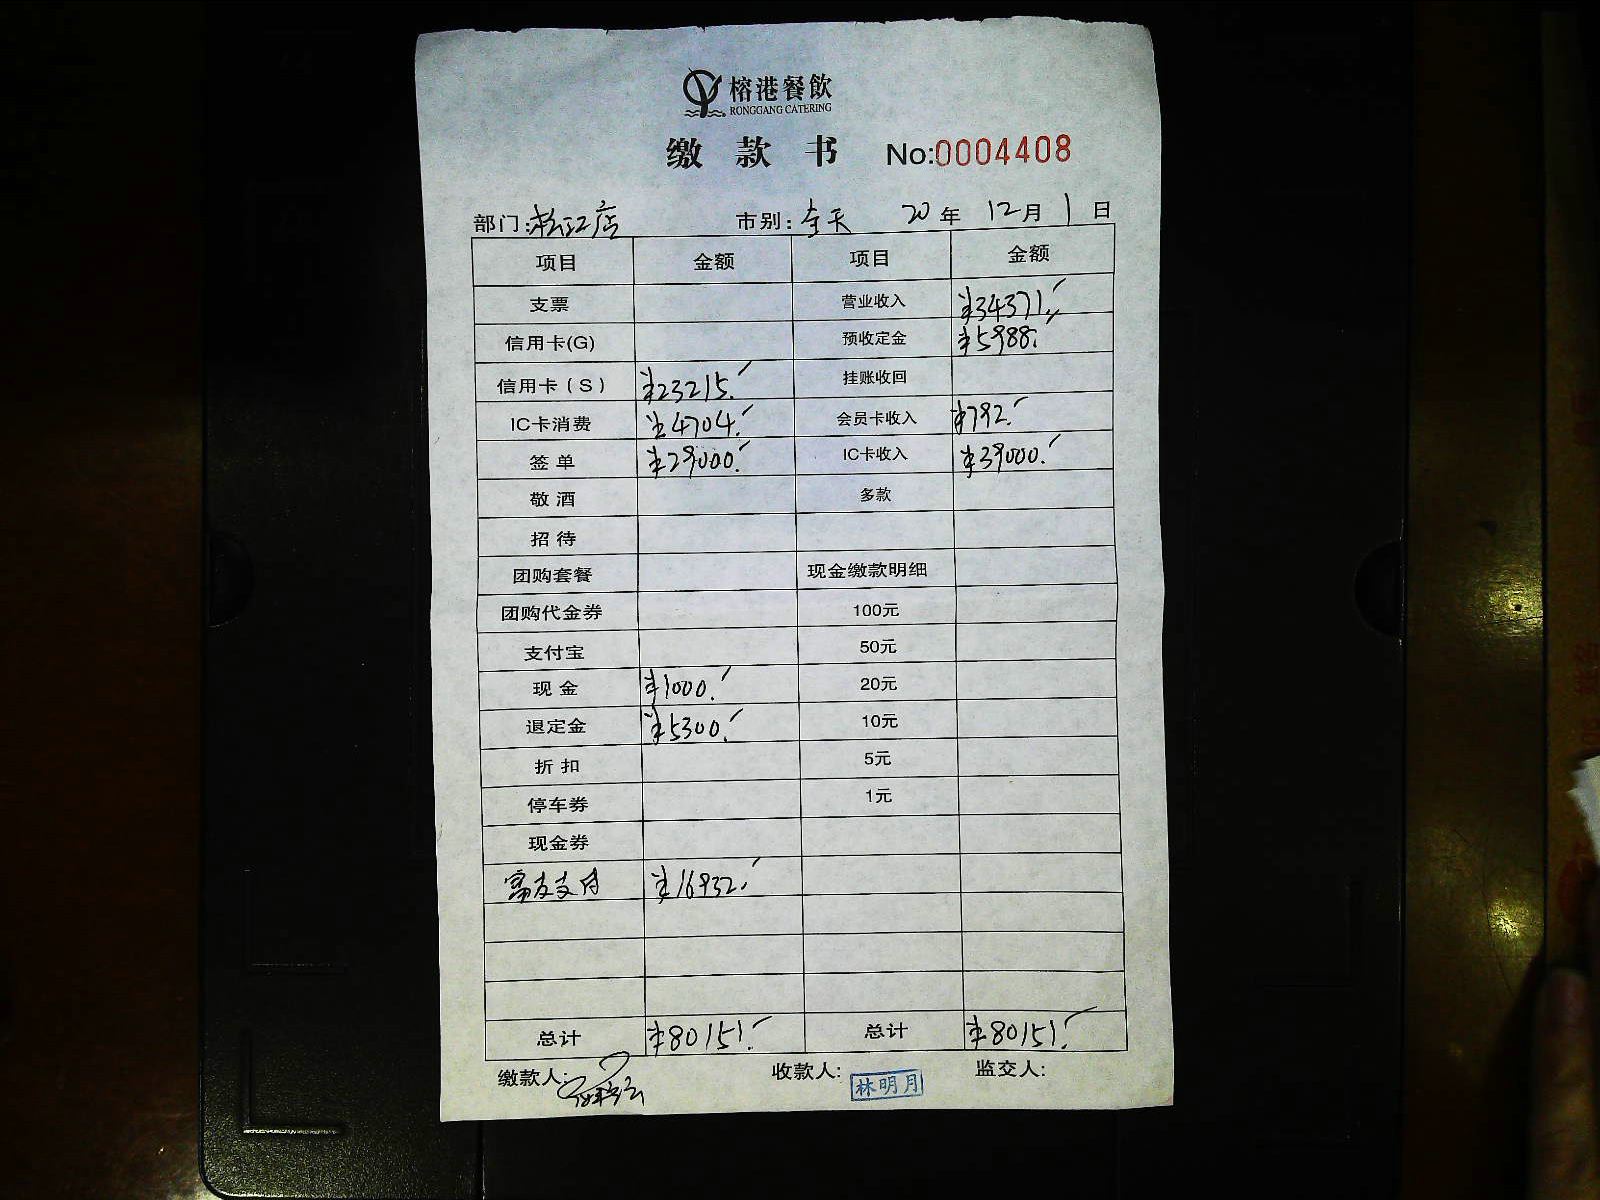 榕港餐飲
RONGGANG CATERING
缴款书 No:0004408
部门:松江店 市别:全天 20年 12月 1日
项目 金额 项目 金额
支票 营业收入 ¥34371.
信用卡(G) 预收定金 ¥5988.
信用卡(S) ¥23215. 挂账收回
IC卡消费 ¥4704. 会员卡收入 ¥792.
签单 ¥29000. IC卡收入 ¥39000.
敬酒 多款
招待
团购套餐 现金缴款明细
团购代金券 100元
支付宝 50元
现金 ¥1000. 20元
退定金 ¥5300. 10元
折扣 5元
停车券 1元
现金券
富友支付 ¥16932.
总计 ¥80151. 总计 ¥80151.
缴款人: 收款人: 林明月 监交人: